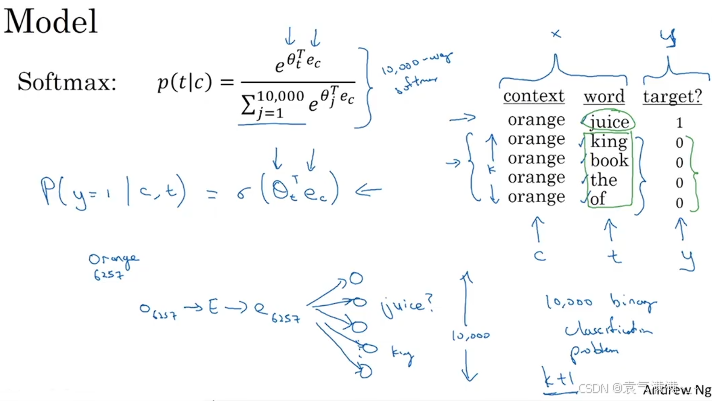 Model
Softmax: p(t|c) = e^{θ_t^T e_c} / ∑_{j=1}^{10,000} e^{θ_j^T e_c}
10,000-way
softmax
x y
context word target?
orange juice 1
orange king 0
orange book 0
orange the 0
orange of 0
k
c t y
P(y=1 | c,t) = σ(θ_t^T e_c) ←
Orange
6257
o_6257 → E → e_6257
juice?
king
10,000
10,000 binary
classification
problem
k+1
CSDN @袁气满满
Andrew Ng